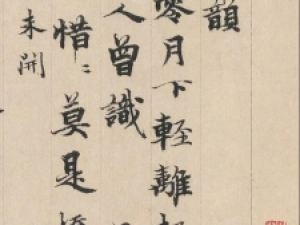 韻
零月下輕離
人曾識
惜〻莫是
未開